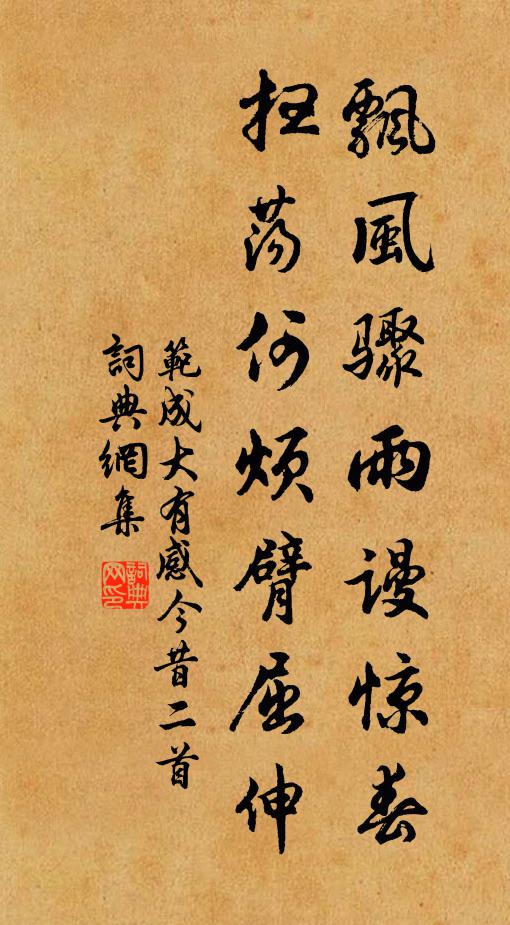 飄風骤雨謾惊春
扫荡何烦臂屈伸
範成大有感今昔二首
詞典網集
詞典网印